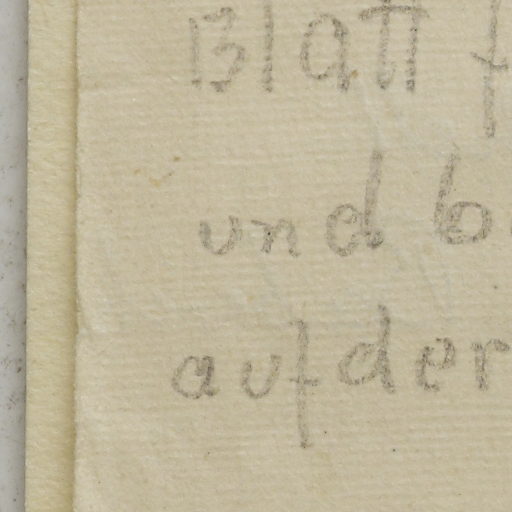 Blatt f
und b
auf der